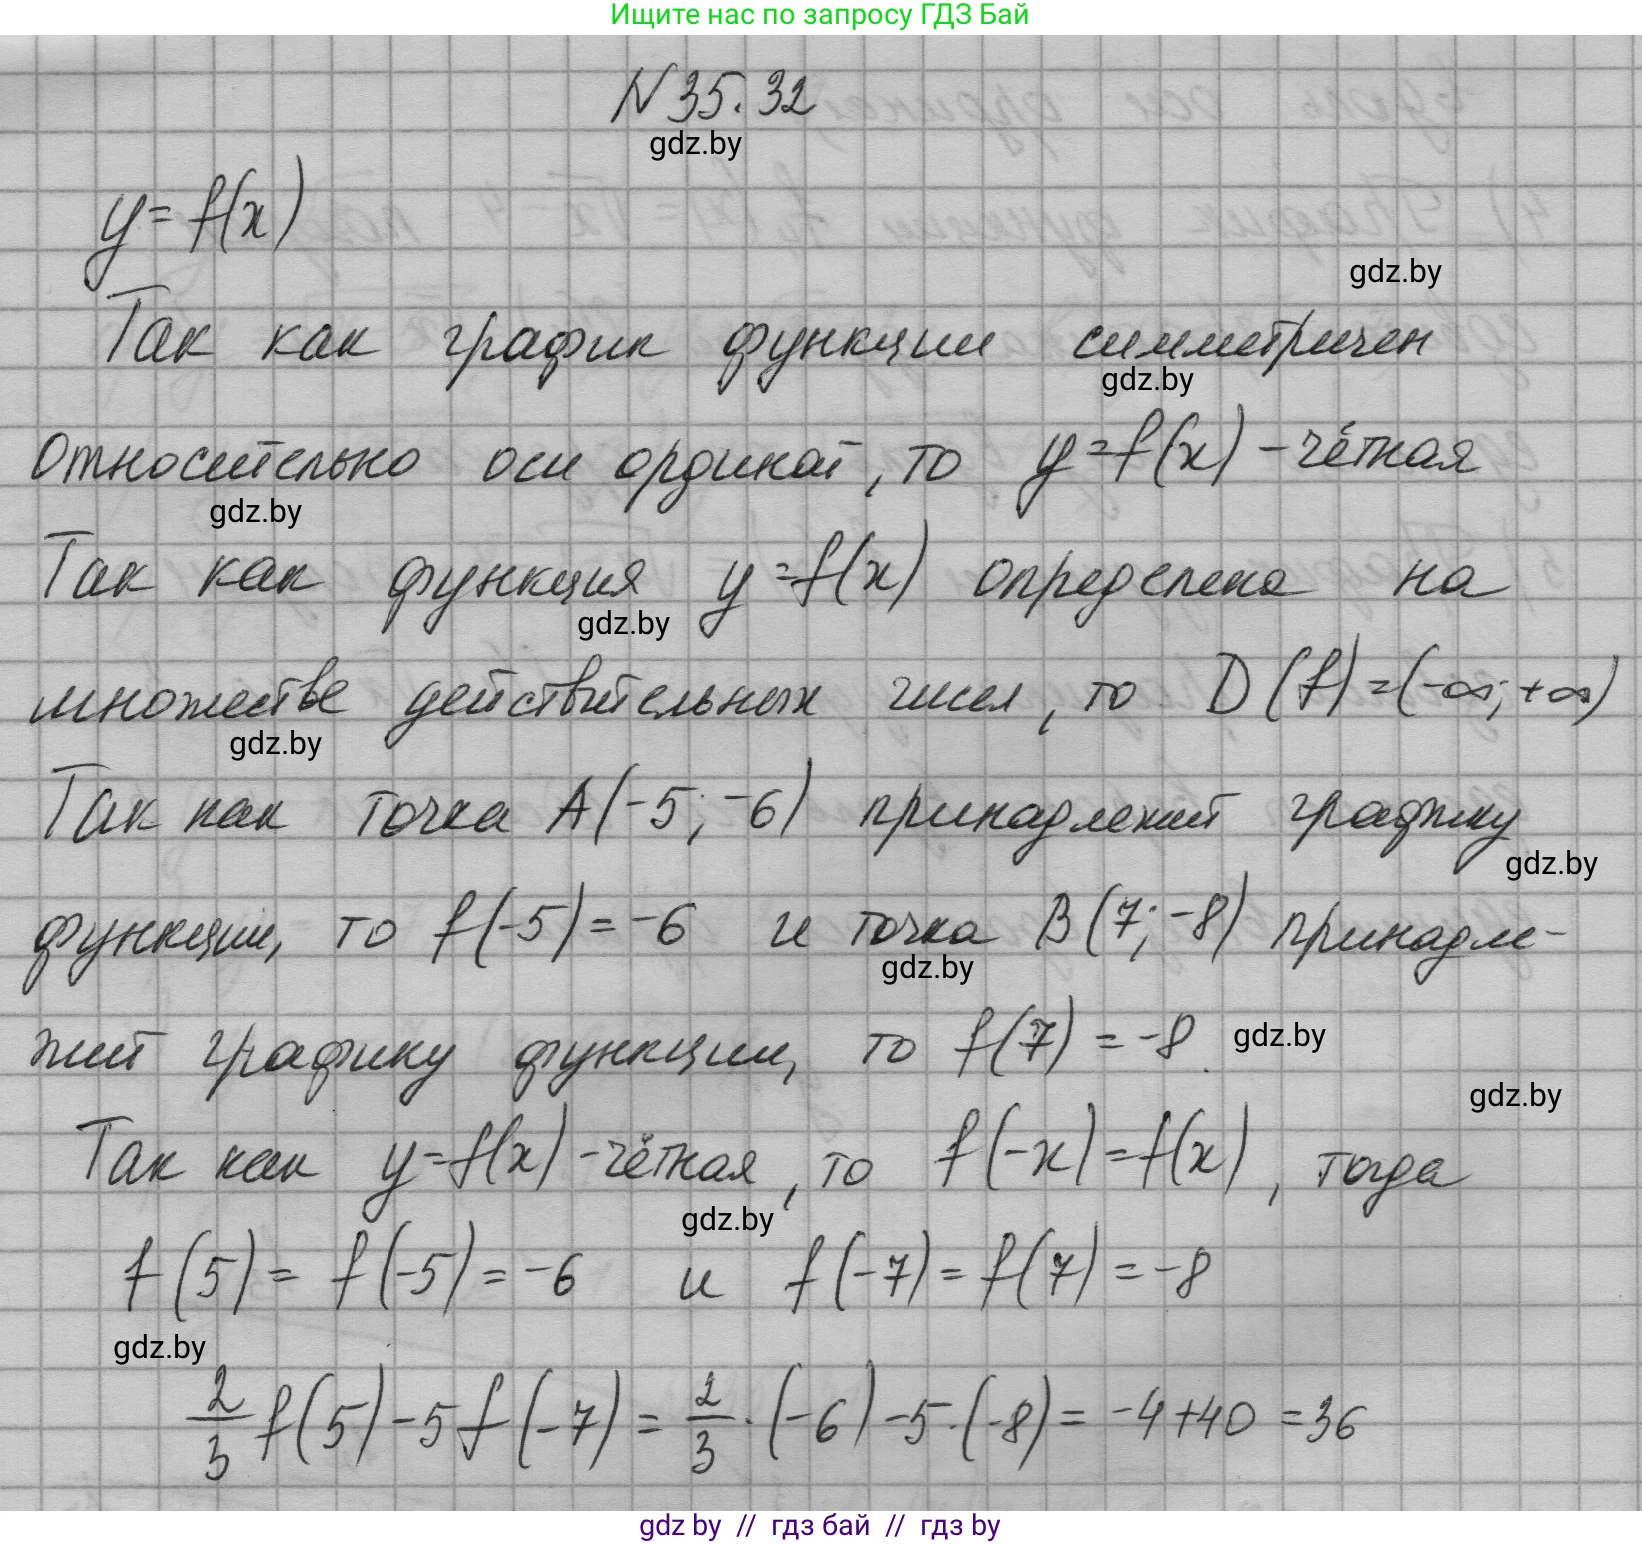 Ищите нас по запросу ГДЗ Бай
N 35.32
gdz.by
y = f(x)
gdz.by
Так как график функции симметричен
gdz.by
относительно оси ординат, то y = f(x) - чётная
gdz.by
Так как функция y = f(x) определена на
gdz.by
множестве действительных чисел, то D(f) = (-∞; +∞)
gdz.by
Так как точка A(-5; -6) принадлежит графику
gdz.by
функции, то f(-5) = -6 и точка B(7; -8) принадле-
gdz.by
жит графику функции, то f(7) = -8.
gdz.by
gdz.by
Так как y = f(x) - чётная, то f(-x) = f(x), тогда
gdz.by
f(5) = f(-5) = -6 и f(-7) = f(7) = -8
gdz.by
2/3 f(5) - 5 f(-7) = 2/3 · (-6) - 5 · (-8) = -4 + 40 = 36
gdz by // гдз бай // гдз by